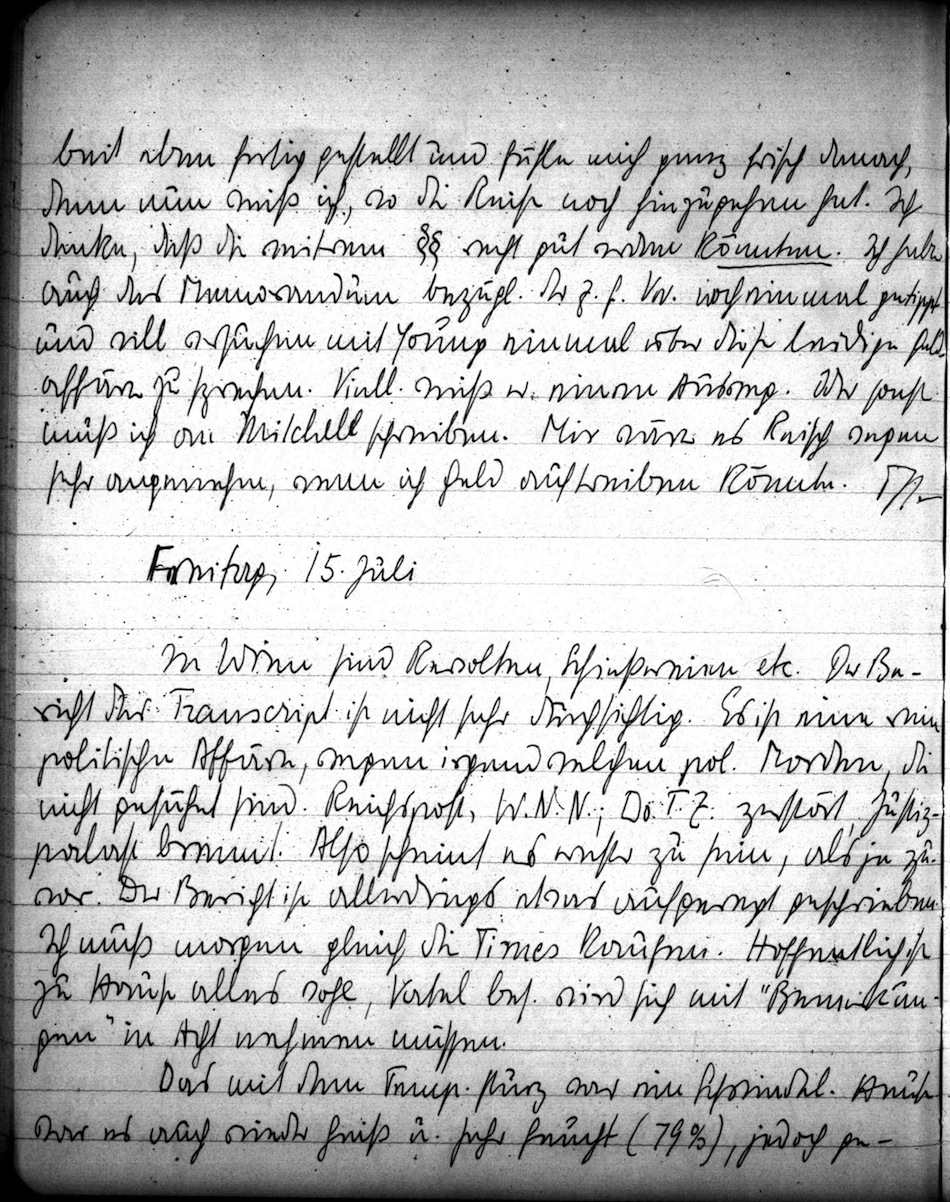 beit eben fertig gestellt und fühle mich ganz frisch danach,
denn nun weiß ich, wo die Reise noch hinzugehen hat. Ich
denke, daß die weiteren §§ recht gut werden könnten. Ich habe
auch das Memorandum bezügl. der Z. f. Vw. noch einmal getippt
und will versuchen mit Young einmal über diese leidige Geld
affäre zu sprechen. Viell. weiß er einen Ausweg. Oder sonst
muß ich an Mitchell schreiben. Mir wäre es Reisch wegen
sehr angenehm, wenn ich Geld auftreiben könnte.
Freitag, 15. Juli
In Wien sind Revolten, Schießereien etc. Der Be-
richt des Transcript ist nicht sehr durchsichtig. Es ist eine rein
politische Affäre, wegen irgend welchen pol. Morden, die
nicht gesühnt sind. Reichspost, W.N.N., Dö.T.Z. zerstört, Justiz-
palast brennt. Also scheint es ernster zu sein, als je zu-
vor. Der Bericht ist allerdings etwas aufgeregt geschrieben.
Ich muß morgen gleich die Times kaufen. Hoffentlich ist
zu Hause alles wohl, bes. wird sich mit "Bemerkun-
gen" in Acht nehmen müssen.
Das mit dem Temp. Sturz war ein Schwindel. Heute
war es auch wieder heiß u. sehr feucht (79%), jedoch ge-